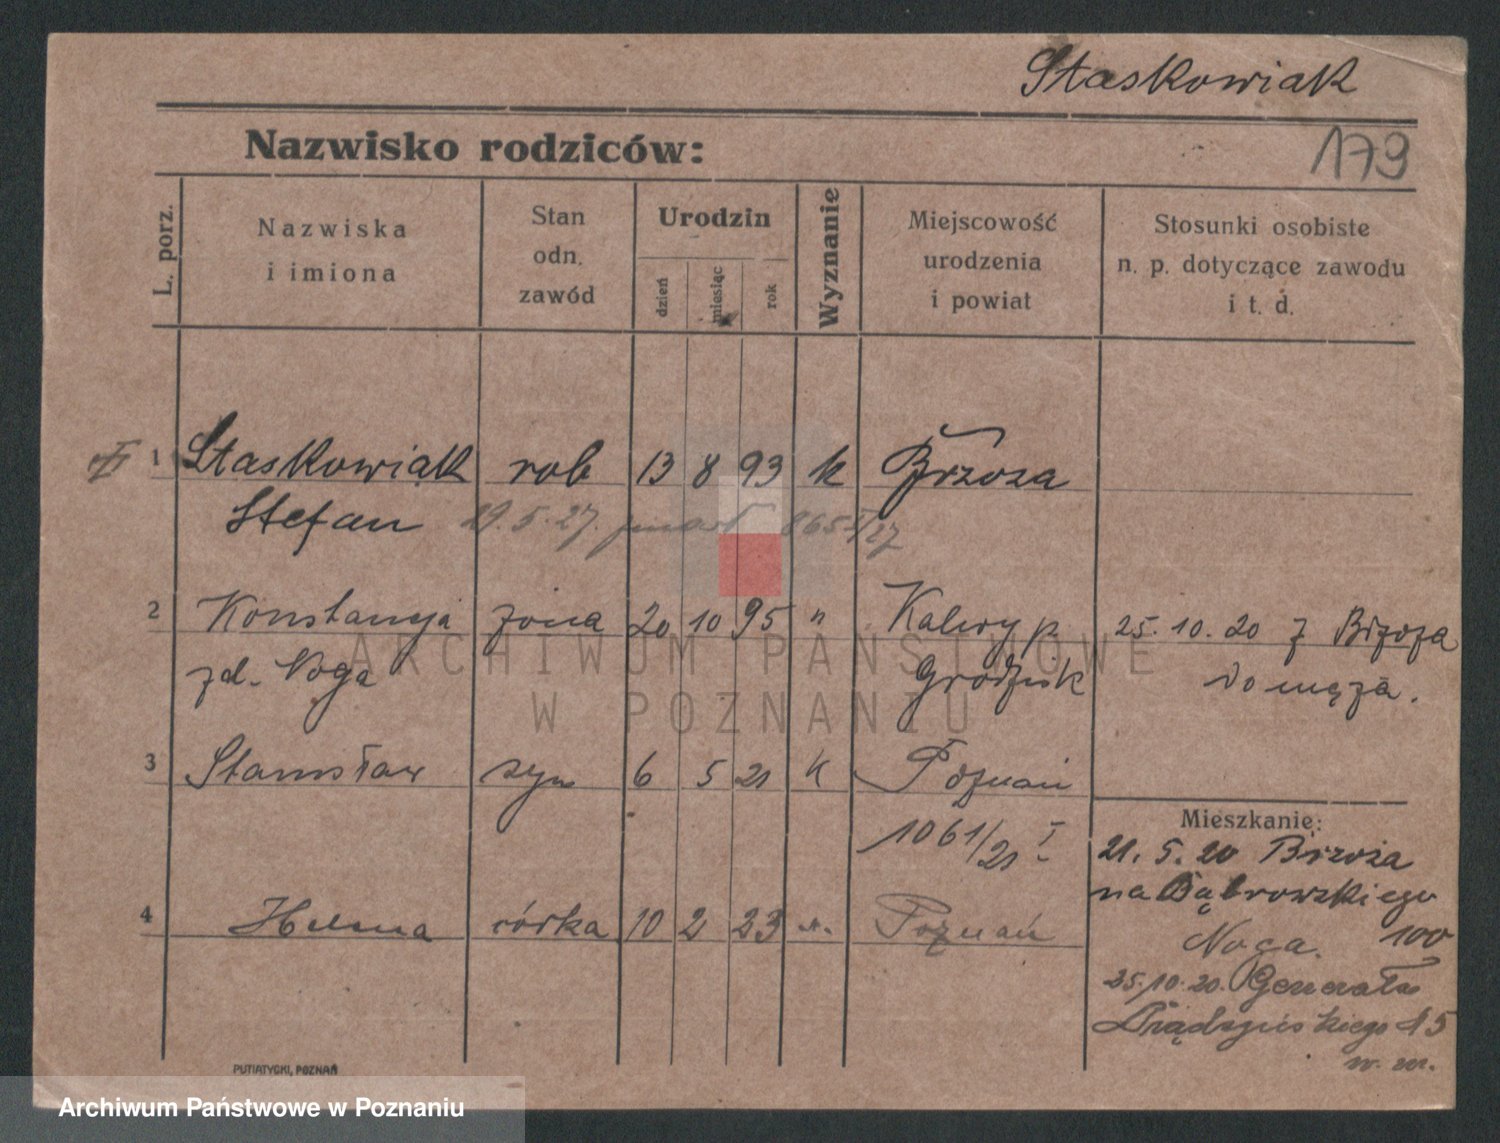 Staskowiak
Nazwisko rodziców:
179
L. porz.
Nazwiska
i imiona
Stan
odn.
zawód
Urodzin
dzień
miesiąc
rok
Wyznanie
Miejscowość
urodzenia
i powiat
Stosunki osobiste
n. p. dotyczące zawodu
i t. d.
1 Staskowiak rob 13 8 93 k Brzoza
Stefan 29.5.27. zmarł 865 I/27
2 Konstancja żona 20 10 95 " Kalwy p. 25.10.20 z Brzoza
zd. Noga Grodzisk do męża.
3 Stanisław syn 6 5 21 k Poznań
1061/21 I
Mieszkanie:
21.5.20 Brzoza
na Dąbrowskiego
Noga. 100
4 Helena córka 10 2 23 Poznań
25.10.20. Generała
Prądzyńskiego 15
w. m.
PUTIATYCKI, POZNAŃ
ARCHIWUM PAŃSTWOWE
W POZNANIU
Archiwum Państwowe w Poznaniu